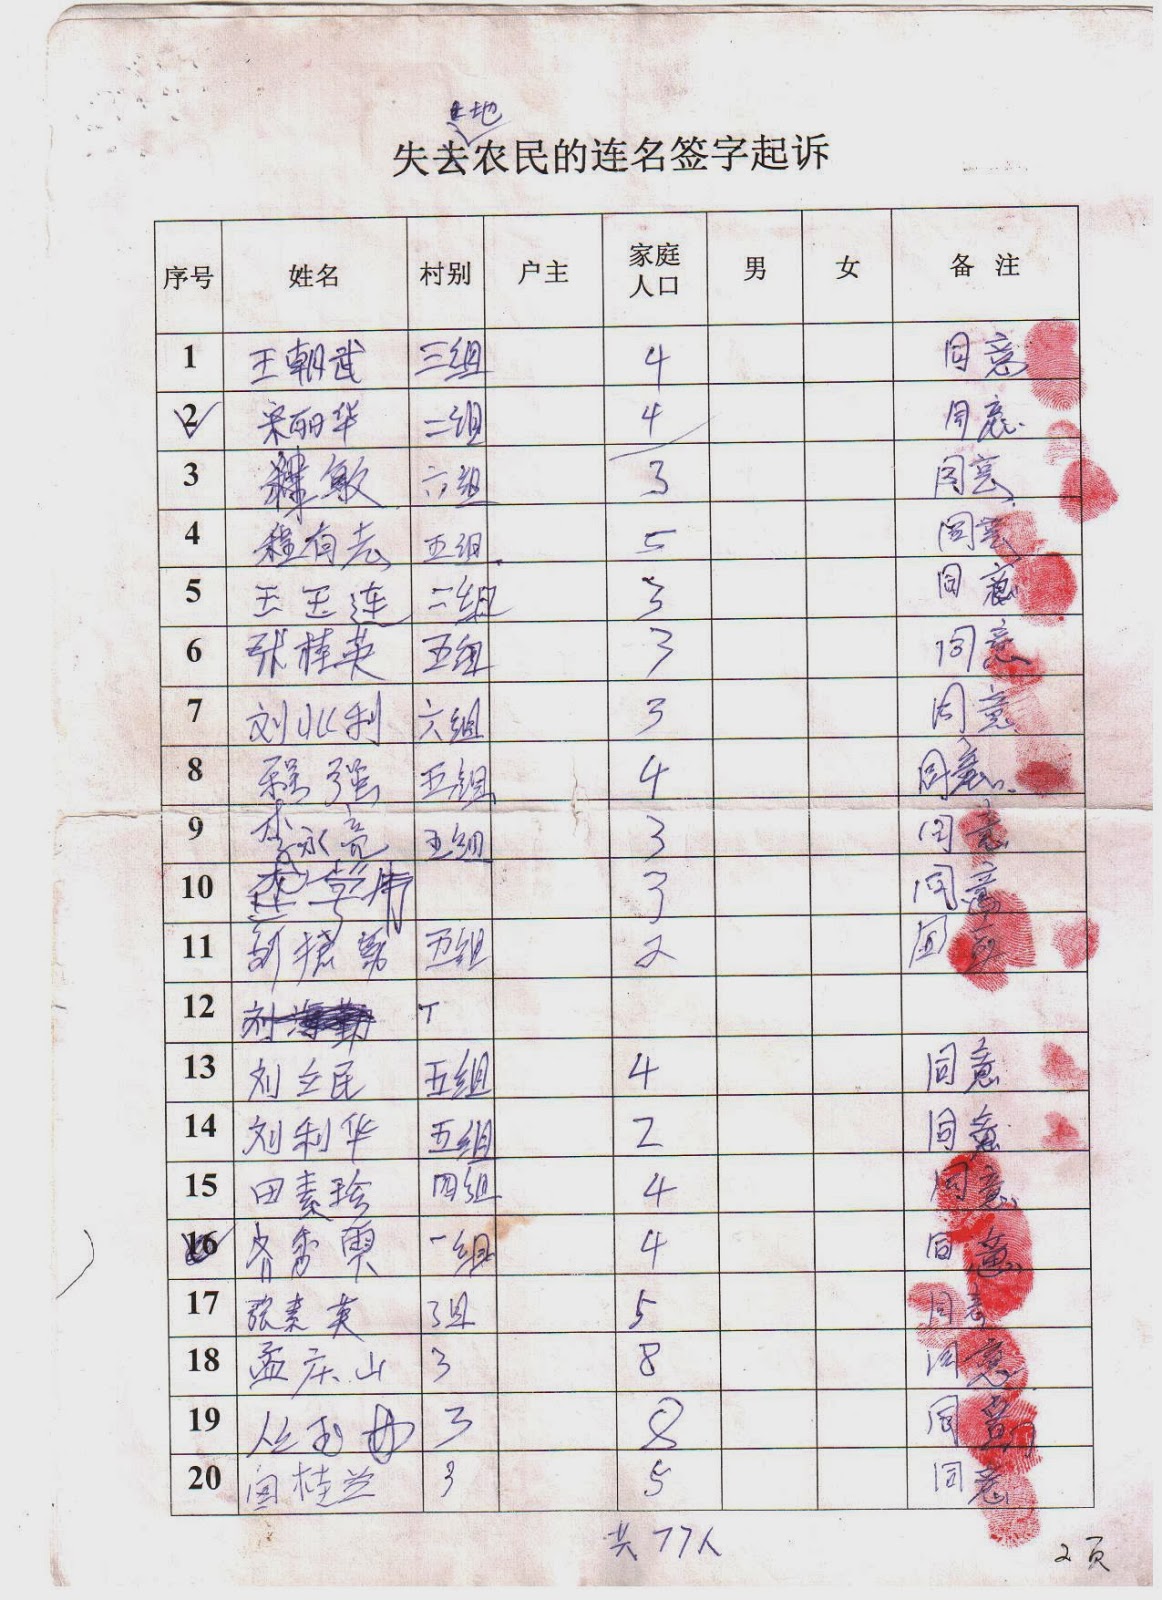 土地
失去农民的连名签字起诉
序号 姓名 村别 户主 家庭人口 男 女 备 注
1 王朝武 三组 4 同意
2 宋丽华 二组 4 同意
3 敏 六组 3 同意
4 程有志 五组 5 同意
5 王玉连 二组 3 同意
6 张桂英 五组 3 同意
7 刘业利 六组 3 同意
8 程强 五组 4 同意
9 李永亮 五组 3 同意
10 3 同意
11 五组 2 同意
12 刘海勤
13 刘立民 五组 4 同意
14 刘利华 五组 2 同意
15 田素珍 四组 4 同意
16 一组 4 同意
17 张素英 3组 5 同意
18 孟庆山 3 8 同意
19 丛玉 3 8 同意
20 闫桂兰 3 5 同意
共77人
2页